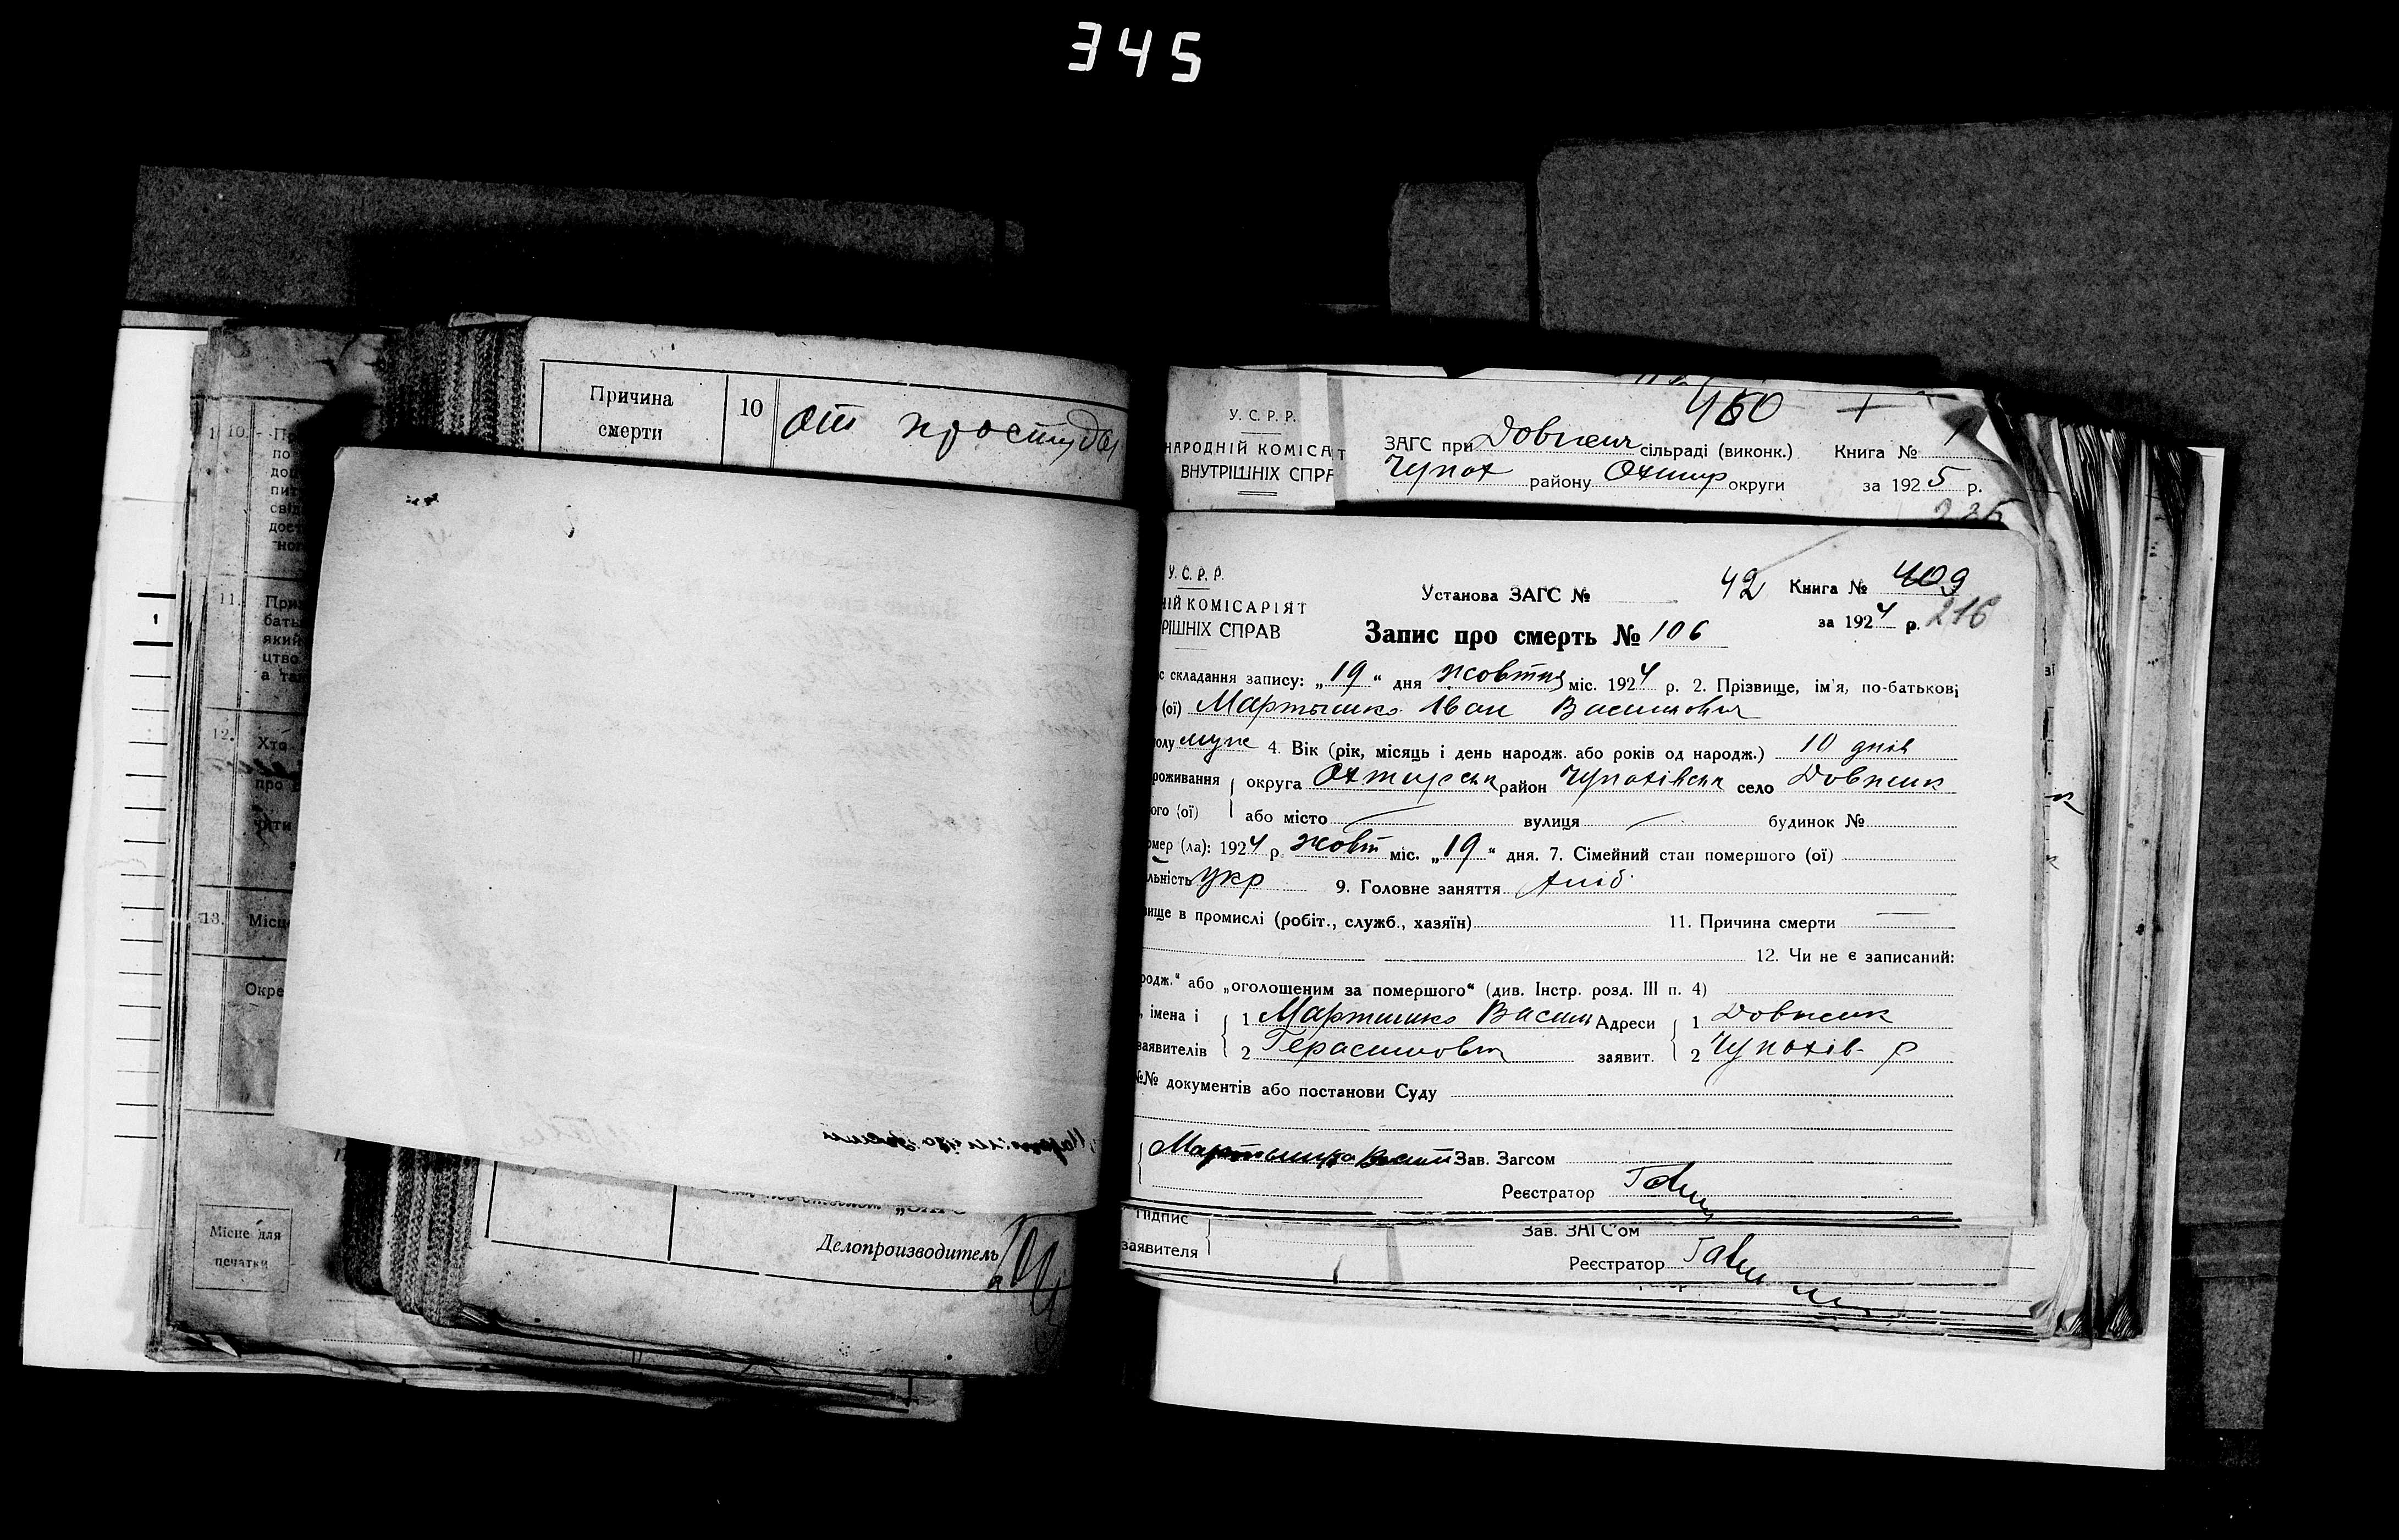 345
Причина
смерти
10
от простуды
10.
11.
12.
Хто
13.
Окре
Місце для
печатки
Делопроизводитель
У. С. Р. Р.
НАРОДНІЙ КОМІСАТ
ВНУТРІШНІХ СПР
460 +
ЗАГС при сільраді (виконк.) Книга № 1
Чупах району Охтир округи за 1925 р.
У. С. Р. Р.
ІЙ КОМІСАРІЯТ
РІШНІХ СПРАВ
Установа ЗАГС № 42 Книга № 409
за 1924 р. 216
Запис про смерть № 106
с складання запису: „19“ дня жовтня міс. 1924 р. 2. Прізвище, ім'я, по-батькові
(ої) Мартишко Іван Васильович
олу муж 4. Вік (рік, місяць і день народж. або років од народж.) 10 днів
роживання округа Охтирськ район Чупахівськ село Довжик
ого (ої) або місто вулиця будинок №
омер (ла): 1924 р. жовт міс. „19“ дня. 7. Сімейний стан помершого (ої)
льність укр 9. Головне заняття хліб
ище в промислі (робіт., служб., хазяїн) 11. Причина смерти —
12. Чи не є записаний:
родж.“ або „оголошеним за помершого“ (див. Інстр. розд. III п. 4)
, імена і 1 Мартишко Васил Адреси 1 Довжик
заявителів 2 Герасимович заявит. 2 Чупахів. р
№№ документів або постанови Суду
Зав. Загсом
Реєстратор
Підпис
заявителя
Зав. ЗАГС'ом
Реєстратор